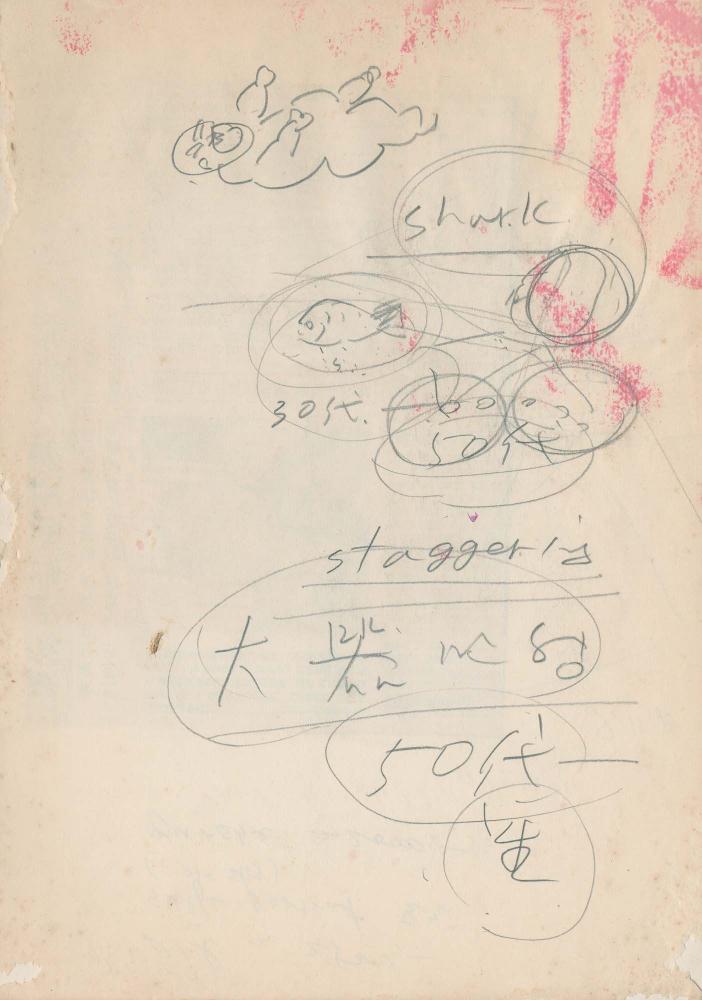 shark
30代
60
50代
staggering
大器 형
50代 —
生